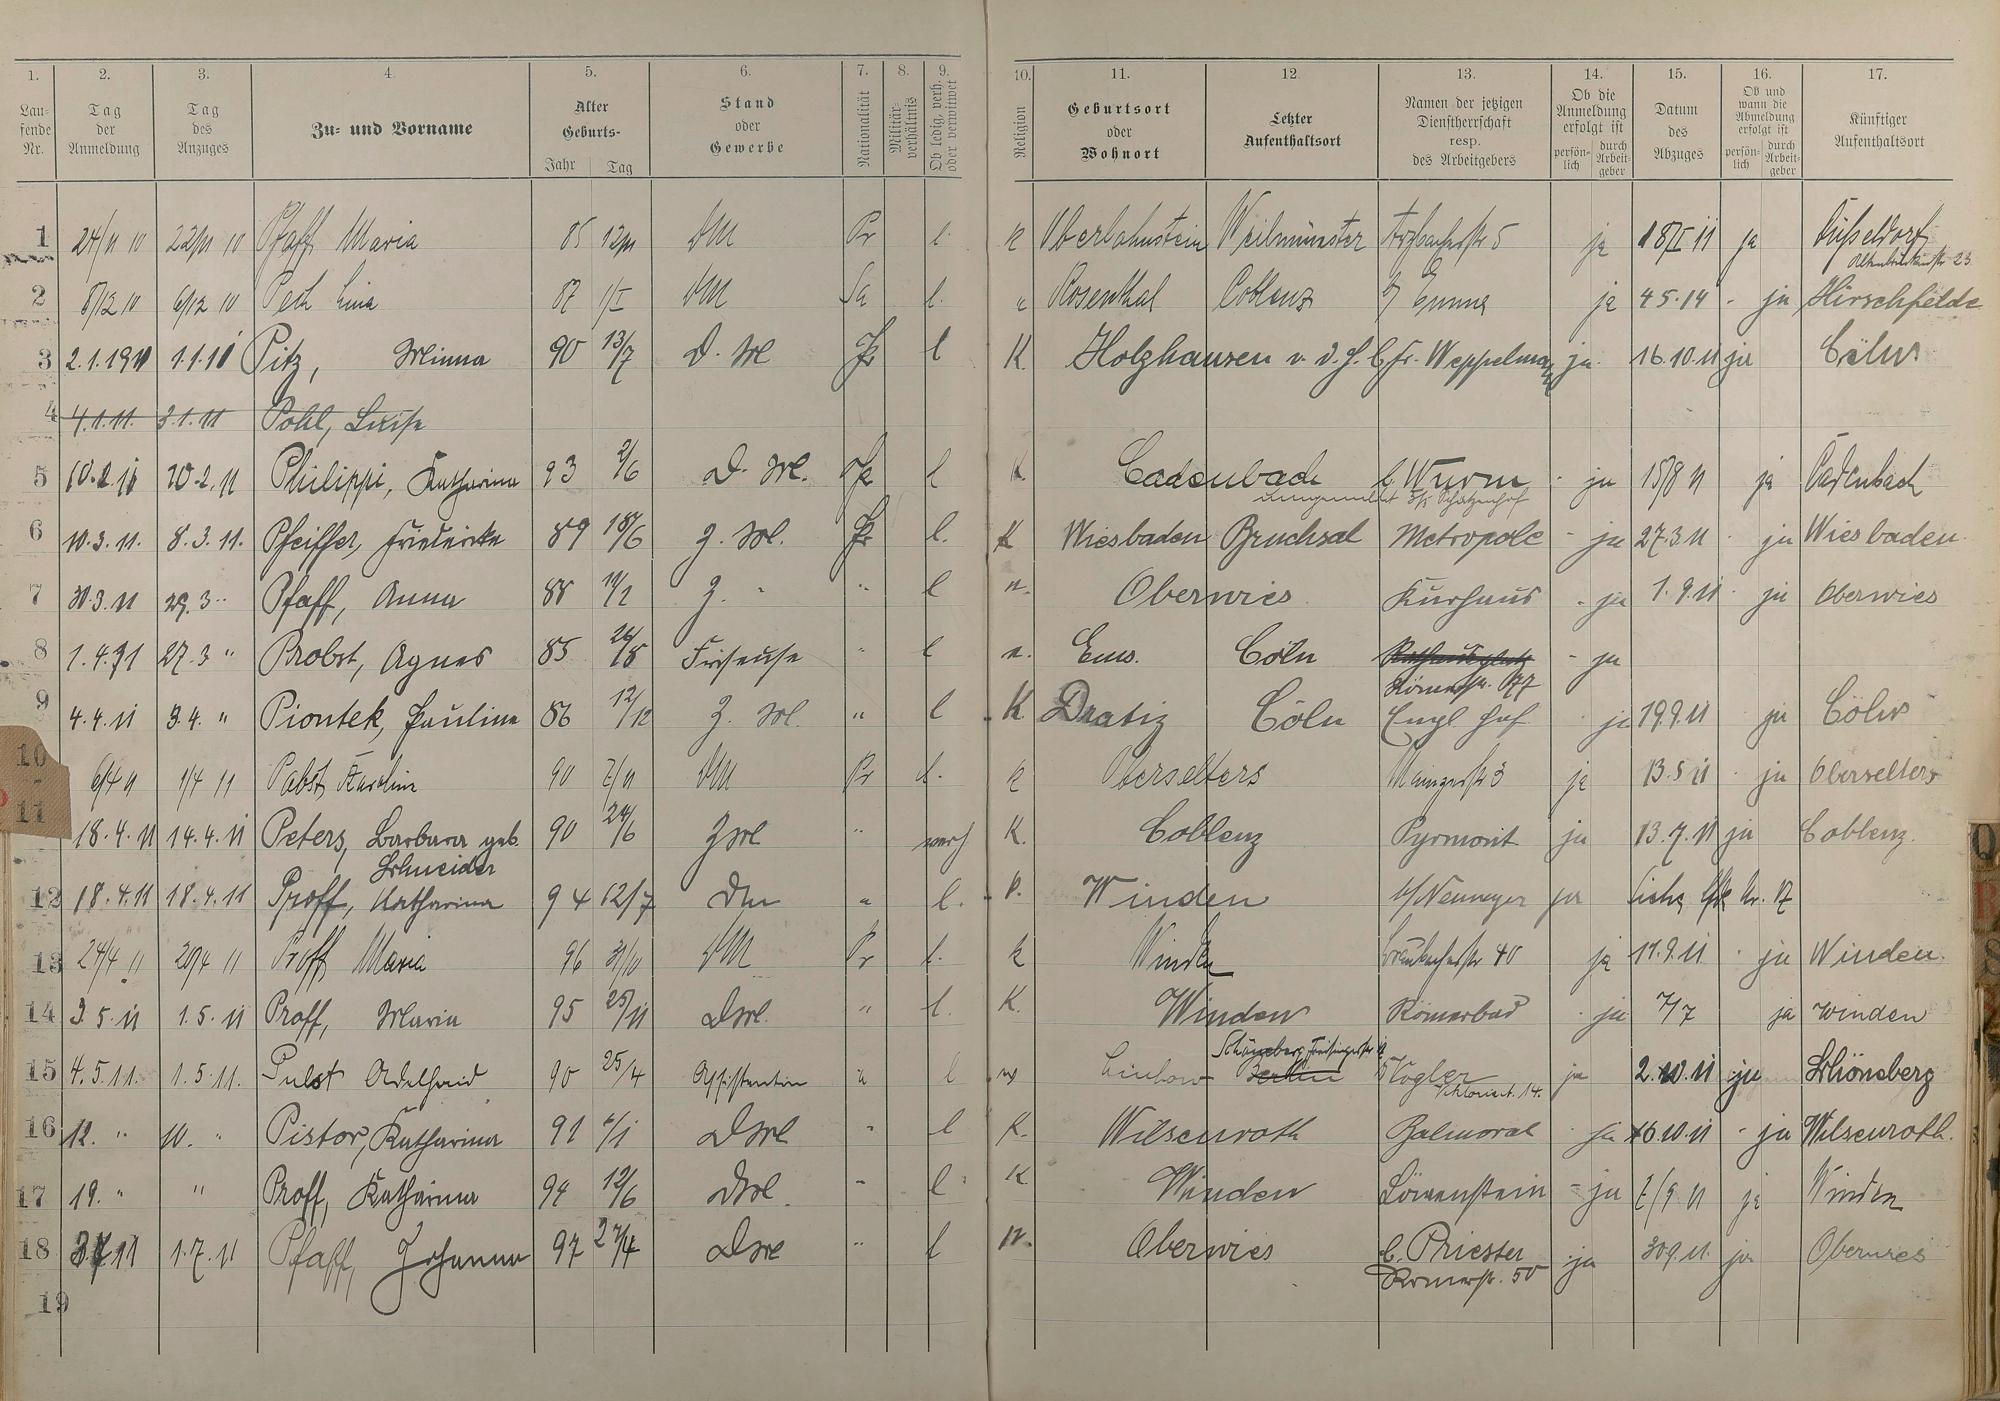 1. 2. 3. 4. 5. 6. 7. 8. 9. 10. 11. 12. 13. 14. 15. 16. 17.
Laufende Nr. Tag der Anmeldung Tag des Anzuges Zu- und Vorname Alter Geburts- Jahr Tag Stand oder Gewerbe Nationalität Militärverhältnis Ob ledig, verh. oder verwitwet Religion Geburtsort oder Wohnort Letzter Aufenthaltsort Namen der jetzigen Dienstherrschaft resp. des Arbeitgebers Ob die Anmeldung erfolgt ist persönlich durch Arbeitgeber Datum des Abzuges Ob und wann die Abmeldung erfolgt ist persönlich durch Arbeitgeber Künftiger Aufenthaltsort
1 24/11 10 22/11 10 Pfaff Maria 85 DM Pr l. k Oberlahnstein Weilmünster ja 18/I 11 ja Düsseldorf
2 8/12 10 6/12 10 Peth Lina 87 1/I DM Sa l. Rosenthal Coblenz ja 4 5. 14 - ja Hirschfelde
3 2.1.1911 1.1.11 Pitz, Minna 90 13/7 D. Ml Pr l K. Holzhausen v. d. H. b. Fr. Weppelmann ja. 16.10.11 ja Cöln
4 4.1.11. 3.1.11 Pohl, Luise
5 10.2.11 10.2.11 Philippi, Katharina 93 2/6 D. Ml. Pr l k. Cadenbach b. Wurm - ja 15/8 11 ja Cadenbach
6 10.3.11. 8.3.11. Pfeiffer, Friederike 89 18/6 Z. Ml. Pr l. K Wiesbaden Bruchsal Metropole - ja 27.3.11 - ja Wiesbaden.
7 30.3.11 29.3 " Pfaff, Anna 88 11/2 Z. " " l Oberwies Kurhaus - ja 1.9.11 - ja Oberwies
8 1.4.11 27.3 " Probst, Agnes 85 26/8 Friseuse " l Ems. Cöln - ja
Römerstr. 77
9 4.4.11 3.4. " Piontek, Paulina 86 12/12 Z. Ml. " l K Dratig Cöln Engl Hof ja 19.9.11 ja Cöln
10 6/4 11 1/4 11 Pabst, Karolin 90 7/11 DM Pr l. k Oberselters Mainzerstr 3 ja 13.5 11 - ja Oberselters
11 18.4.11 14.4.11 Peters, Barbara geb. 90 24/6 ZMl " verh K. Coblenz Pyrmont ja 13.7.11 ja Coblenz.
Schneider
12 18.4.11 18.4.11 Proff, Katharina 94 12/7 Dm " l. k. Winden Neumeyer ja Siehe Nr. 17
13 24/4 11 20/4 11 Proff Maria 96 31/10 DM Pr l. k Winden Braubacherstr 40 ja 11.9.11 - ja Winden.
14 3.5.11 1.5.11 Proff, Maria 95 25/11 DMl. " l. K. Winden Römerbad - ja 7/7 ja Winden
15 4.5.11. 1.5.11. Pulst Adelheid 90 25/4 Assistentin " l Berlin Vogler ja 2.10.11 ja Schöneberg
Viktoriaa. 14.
16 12. " 10. " Pistor, Katharina 91 DMl " l K. Wilsenroth Balmoral - ja 16.10.11 - ja Wilsenroth.
17 19. " " Proff, Katharina 94 12/6 DMl. " l K Winden Löwenstein - ja 7/9 11 ja Winden
18 11 1.7.11 Pfaff, Johanna 97 27/4 DMl " l Oberwies b. Priester ja 30 9. 11. ja Oberwies
Römerstr. 50
19